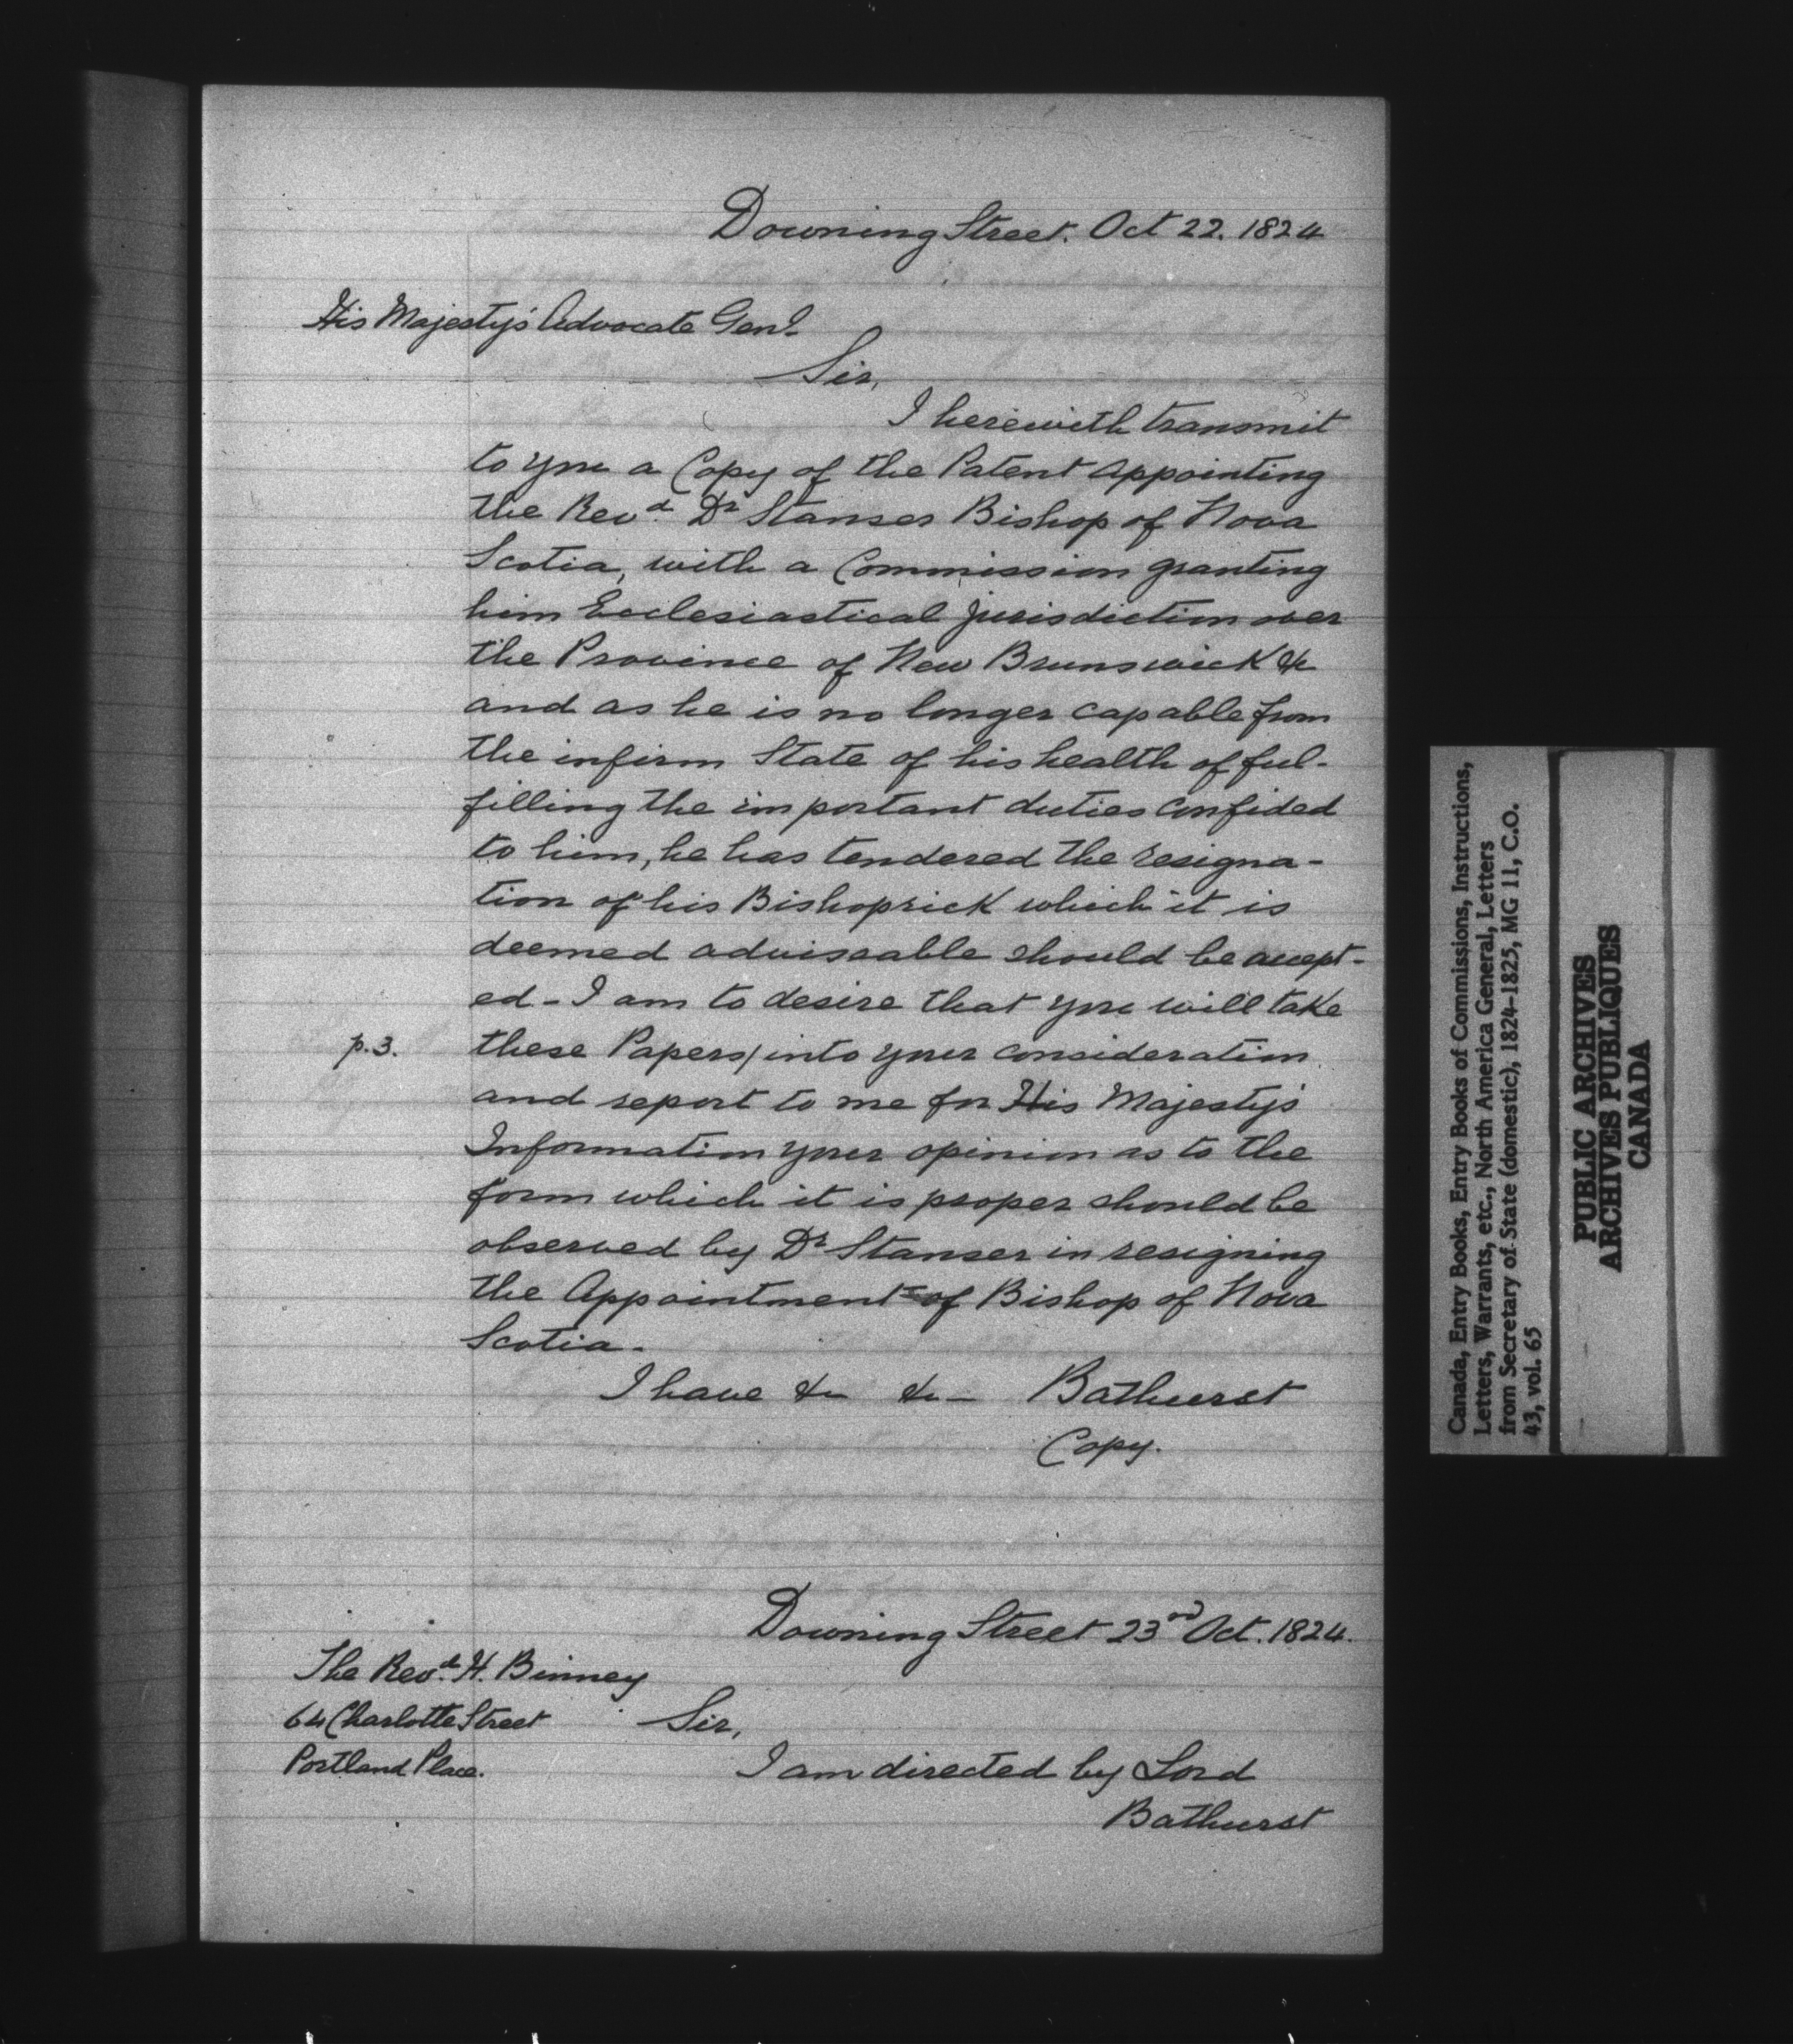 Downing Street. Oct 22. 1824
His Majesty's Advocate Genl.
Sir,
I herewith transmit
to you a Copy of the Patent appointing
the Revd. Dr Stanser Bishop of Nova
Scotia, with a Commission granting
him Ecclesiastical jurisdiction over
the Province of New Brunswick &c
and as he is no longer capable from
the infirm State of his health of ful-
filling the important duties confided
to him, he has tendered the resigna-
tion of his Bishoprick which it is
deemed adviseable should be accept-
ed - I am to desire that you will take
p.3. these Papers/into your consideration
and report to me for His Majesty's
Information your opinion as to the
form which it is proper should be
observed by Dr Stanser in resigning
the Appointment of Bishop of Nova
Scotia.
I have &c &c - Bathurst
Copy.
Downing Street 23rd Oct. 1824.
The Revd. H. Binney
64 Charlotte Street
Portland Place.
Sir,
I am directed by Lord
Bathurst
Canada, Entry Books, Entry Books of Commissions, Instructions,
Letters, Warrants, etc., North America General, Letters
from Secretary of State (domestic), 1824-1825, MG 11, C.O.
43, vol. 65
PUBLIC ARCHIVES
ARCHIVES PUBLIQUES
CANADA